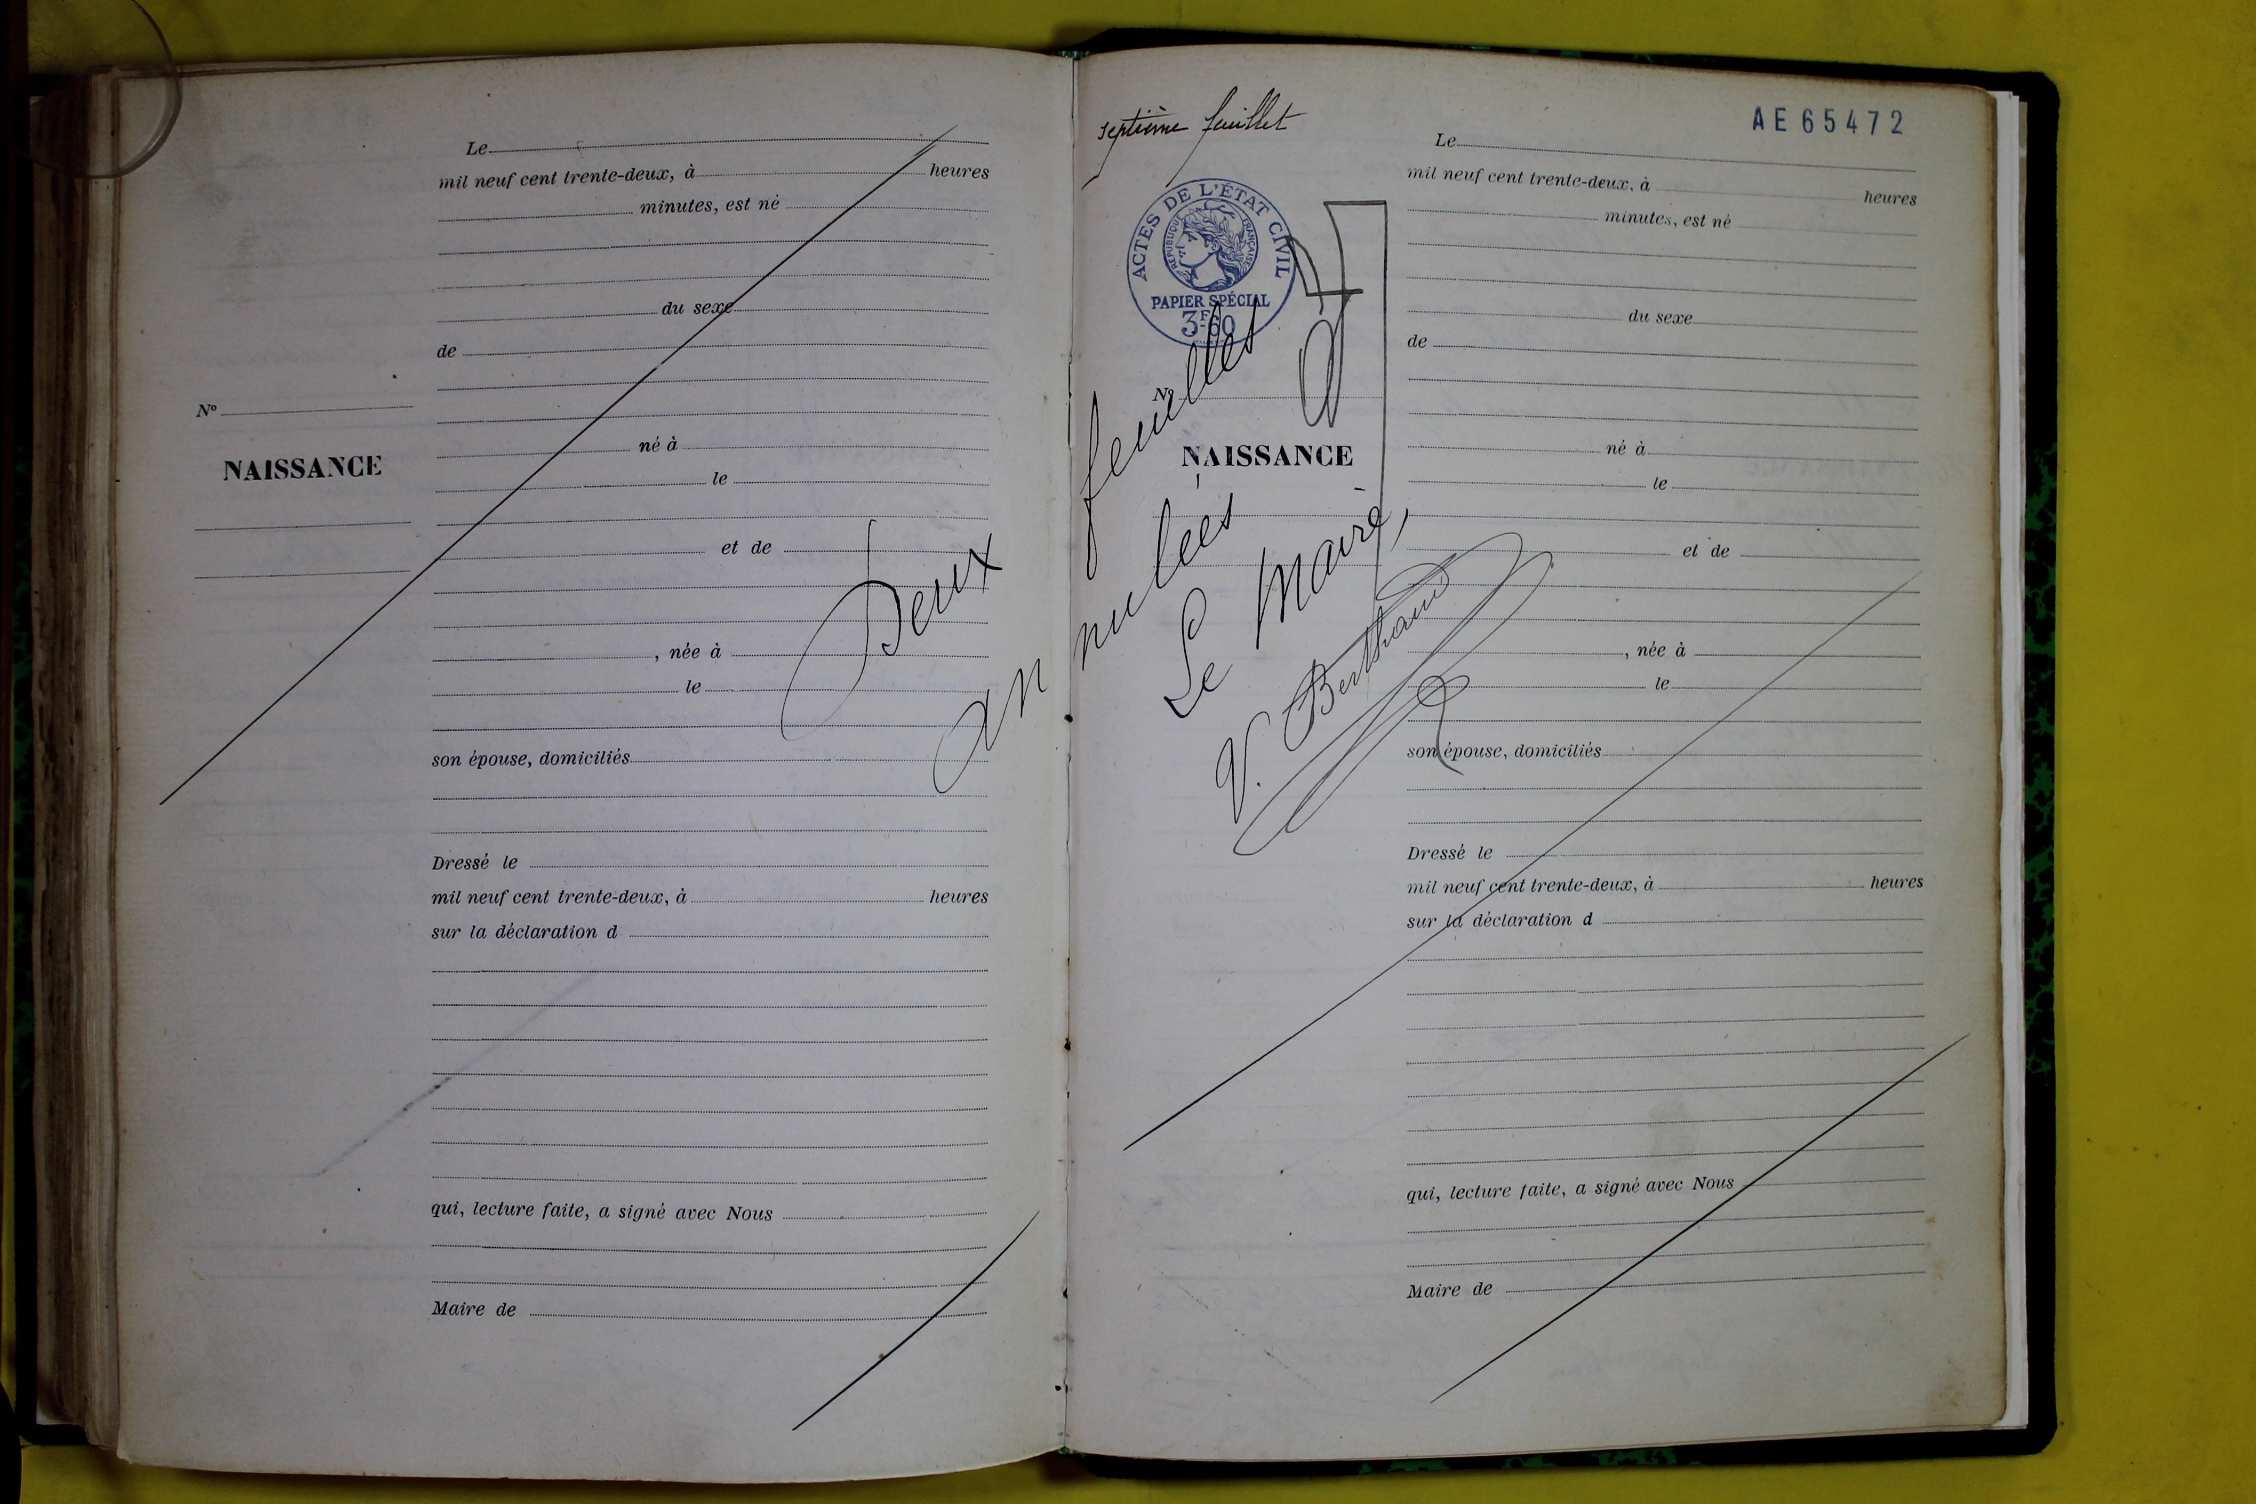 Le
mil neuf cent trente-deux, à heures
minutes, est né
du sexe
de
né à
le
et de
, née à
le
son épouse, domiciliés
Dressé le
mil neuf cent trente-deux, à heures
sur la déclaration d
qui, lecture faite, a signé avec Nous
Maire de
No
NAISSANCE
Deux feuilles
annulées
Le Maire,
V. Berthaud
septième feuillet
AE65472
ACTES DE L'ÉTAT CIVIL
RÉPUBLIQUE FRANÇAISE
PAPIER SPÉCIAL
3F60
No
NAISSANCE
Le
mil neuf cent trente-deux, à heures
minutes, est né
du sexe
de
né à
le
et de
, née à
le
son épouse, domiciliés
Dressé le
mil neuf cent trente-deux, à heures
sur la déclaration d
qui, lecture faite, a signé avec Nous
Maire de